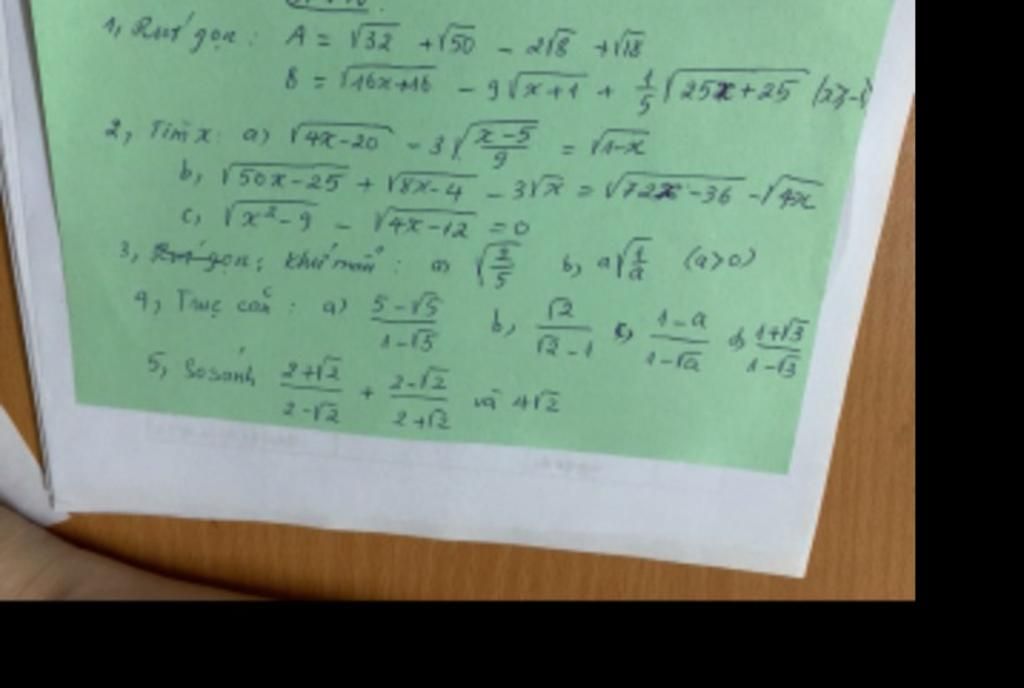 1, Rút gọn : A = √32 + √50 - 2√8 + √18
B = √16x+16 - 9√x+1 + 1/5 √25x+25 (x≥-1)
2, Tìm x: a) √4x-20 - 3√(x-5)/9 = √1-x
b, √50x-25 + √8x-4 - 3√x = √72x-36 - √4x
c, √x²-9 - √4x-12 = 0
3, Rút gọn; khử mẫu : a) √2/5 b, a√1/a (a>0)
4, Trục căn : a) (5-√5)/(1-√5) b, √2/(√2-1) c, (1-a)/(1-√a) d, (1+√3)/(1-√3)
5, So sánh (2+√2)/(2-√2) + (2-√2)/(2+√2) và 4√2